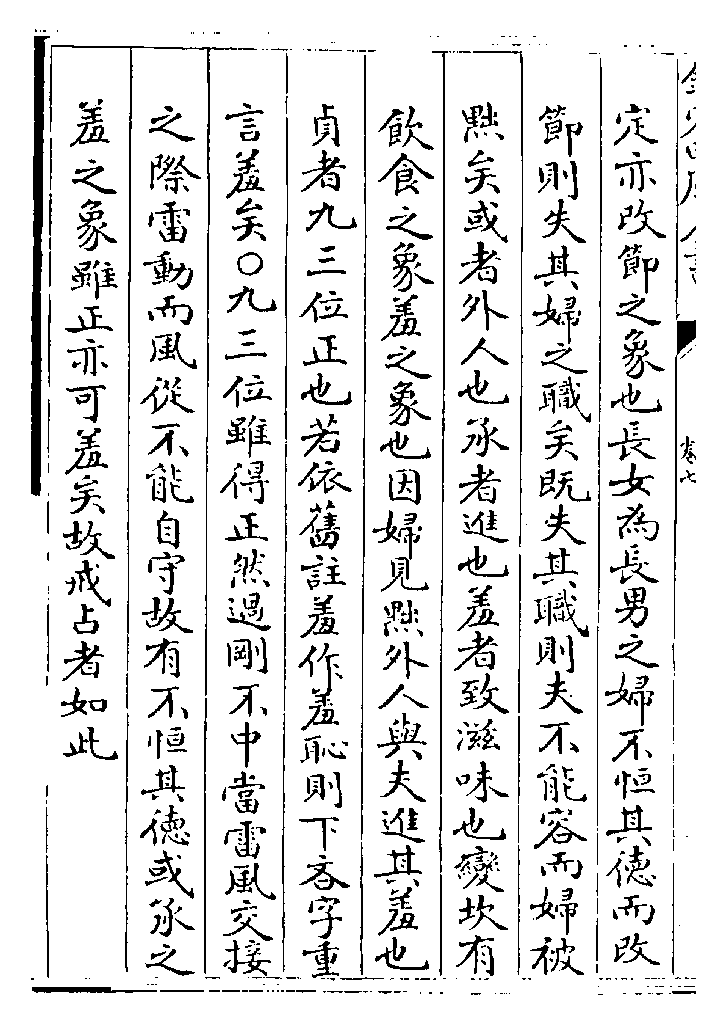 定亦改節之象也長女為長男之婦不恒其德而改
節則失其婦之職矣既失其職則夫不能容而婦被
黜矣或者外人也承者進也羞者致滋味也變坎有
飲食之象羞之象也因婦見黜外人與夫進其羞也
貞者九三位正也若依舊註羞作羞恥則下吝字重
言羞矣○九三位雖得正然過剛不中當雷風交接
之際雷動而風從不能自守故有不恒其德或承之
羞之象雖正亦可羞矣故戒占者如此
卷七